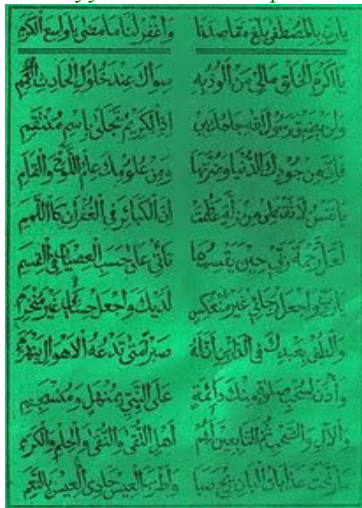 يارب بالمصطفى بلغ مقاصدنا واغفر لنا ما مضى يا واسع الكرم
يا اكرم الخلق مالي من الوذ به سواك عند حلول الحادث العمم
ولن يضيق رسول الله جاهك بي اذا الكريم تجلى باسم منتقم
فان من جودك الدنيا وضرتها ومن علومك علم اللوح والقلم
يا نفس لا تقنطي من زلة عظمت ان الكبائر في الغفران كاللمم
لعل رحمة ربي حين يقسمها تأتي على حسب العصيان في القسم
يارب واجعل رجائي غير منعكس لديك واجعل حسابي غير منخرم
والطف بعبدك في الدارين ان له صبرا متى تدعه الاهوال ينهزم
وأذن لسحب صلاة منك دائمة على النبي بمنهل ومنسجم
والآل والصحب ثم التابعين لهم اهل التقى والنقى والحلم والكرم
ما رنحت عذبات البان ريح صبا واطرب العيس حادي العيس بالنغم